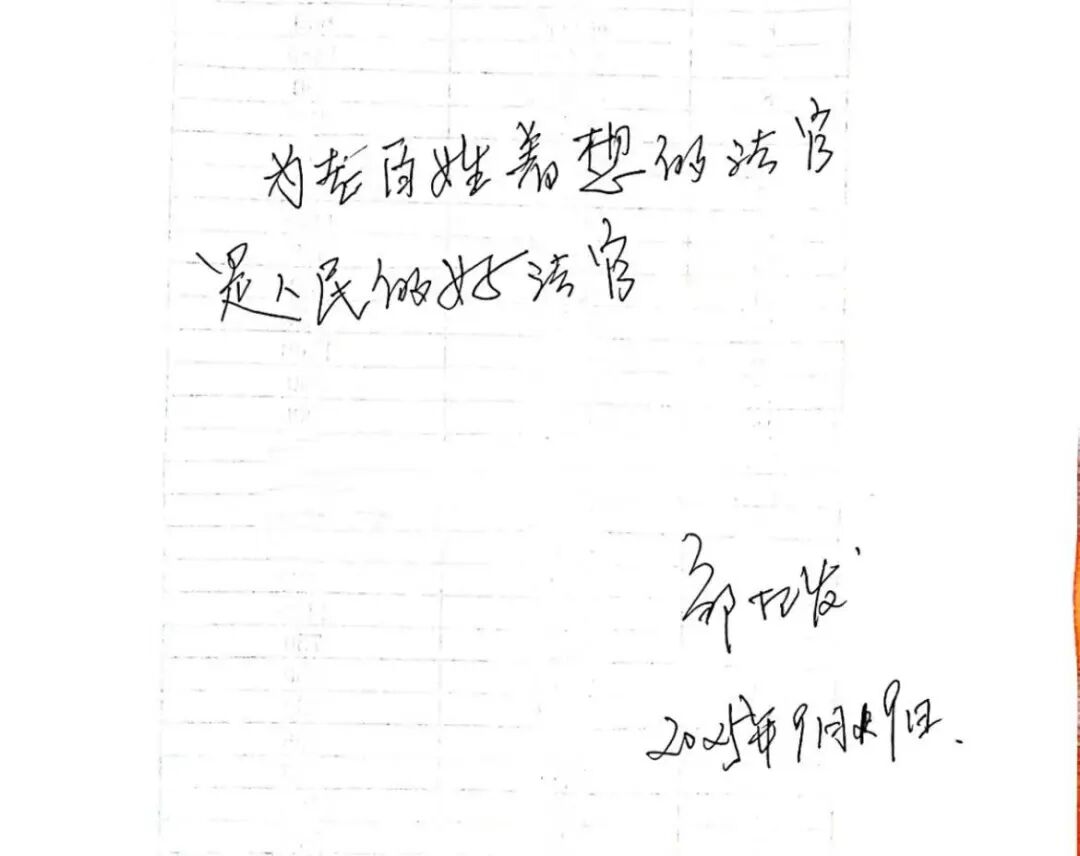 为老百姓着想的法官
是人民的好法官
2025年9月9日.